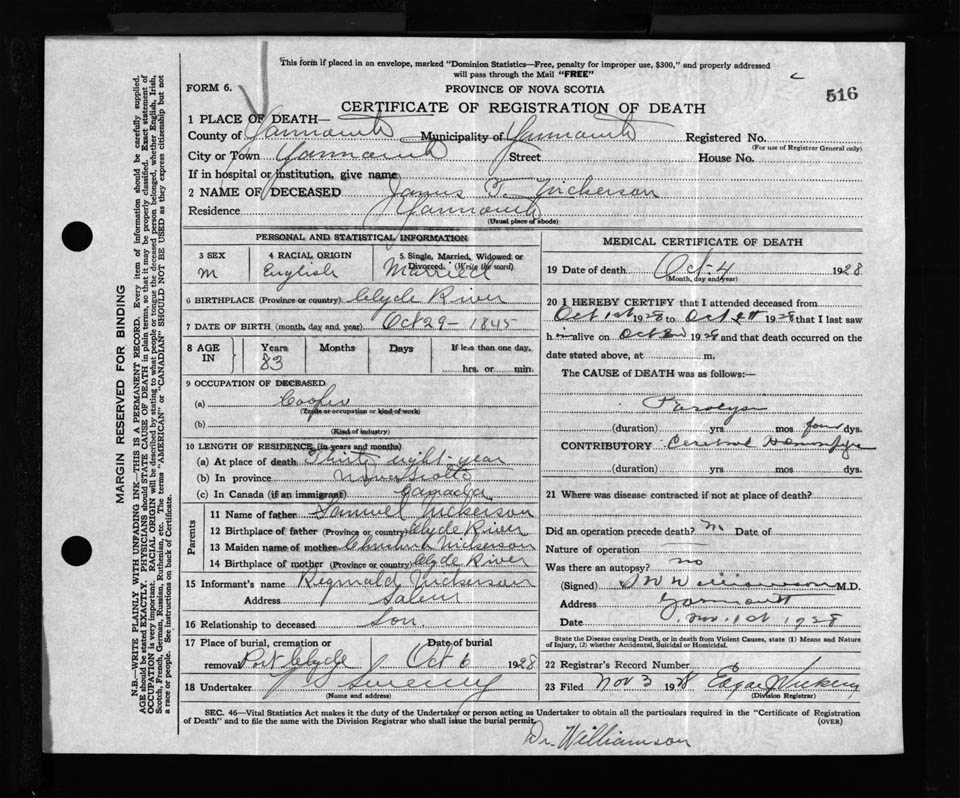 This form if placed in an envelope, marked "Dominion Statistics—Free, penalty for improper use, $300," and properly addressed
will pass through the Mail "FREE"
FORM 6.
PROVINCE OF NOVA SCOTIA
516
CERTIFICATE OF REGISTRATION OF DEATH
1 PLACE OF DEATH—
County of Yarmouth Municipality of Yarmouth Registered No.
(For use of Registrar General only)
City or Town Yarmouth Street House No.
If in hospital or institution, give name
2 NAME OF DECEASED James T. Nickerson
Residence Yarmouth
(Usual place of abode)
PERSONAL AND STATISTICAL INFORMATION
3 SEX
M
4 RACIAL ORIGIN
English
5 Single, Married, Widowed or
Divorced. (Write the word)
Married
6 BIRTHPLACE (Province or country) Clyde River
7 DATE OF BIRTH (month, day and year) Oct 29 - 1845
8 AGE
IN
Years
83
Months
Days
If less than one day,
hrs. or min.
9 OCCUPATION OF DECEASED
(a) Cooper
(Trade or occupation or kind of work)
(b)
(Kind of industry)
10 LENGTH OF RESIDENCE (in years and months)
(a) At place of death Thirty eight year
(b) In province Nova Scotia
(c) In Canada (if an immigrant) Canada
Parents
11 Name of father Samuel Nickerson
12 Birthplace of father (Province or country) Clyde River
13 Maiden name of mother Nickerson
14 Birthplace of mother (Province or country) Clyde River
15 Informant's name Reginald Nickerson
Address Salem
16 Relationship to deceased Son
17 Place of burial, cremation or
removal Port Clyde
Date of burial
Oct 6 1928
18 Undertaker Sweeny
(Name and address)
MEDICAL CERTIFICATE OF DEATH
19 Date of death Oct. 4 1928
(Month, day and year)
20 I HEREBY CERTIFY that I attended deceased from
Oct 1st 1928 to Oct 1928 that I last saw
him alive on Oct 1928 and that death occurred on the
date stated above, at m.
The CAUSE of DEATH was as follows:—
Paralysis
(duration) yrs mos four dys.
CONTRIBUTORY Cerebral
(duration) yrs mos dys.
21 Where was disease contracted if not at place of death?
Did an operation precede death? No Date of
Nature of operation
Was there an autopsy? no
(Signed) Williamson M.D.
Address Yarmouth
Date Nov. 1st 1928
State the Disease causing Death, or in death from Violent Causes, state (1) Means and Nature
of Injury, (2) whether Accidental, Suicidal or Homicidal.
22 Registrar's Record Number
23 Filed Nov 3 1928 Edgar
(Division Registrar)
SEC. 46—Vital Statistics Act makes it the duty of the Undertaker or person acting as Undertaker to obtain all the particulars required in the "Certificate of Registration
of Death" and to file the same with the Division Registrar who shall issue the burial permit.
(OVER)
Dr. Williamson
MARGIN RESERVED FOR BINDING
N.B.—WRITE PLAINLY WITH UNFADING INK—THIS IS A PERMANENT RECORD. Every item of information should be carefully supplied.
AGE should be stated EXACTLY. PHYSICIANS should STATE CAUSE OF DEATH in plain terms, so that it may be properly classified. Exact statement of
OCCUPATION is very important. RACIAL ORIGIN will be described by stating to what people or tongue the deceased person belonged, whether English, Irish,
Scotch, French, German, Russian, Ruthenian, etc. The terms "AMERICAN" or "CANADIAN" SHOULD NOT BE USED as they express citizenship but not
a race or people. See instructions on back of Certificate.